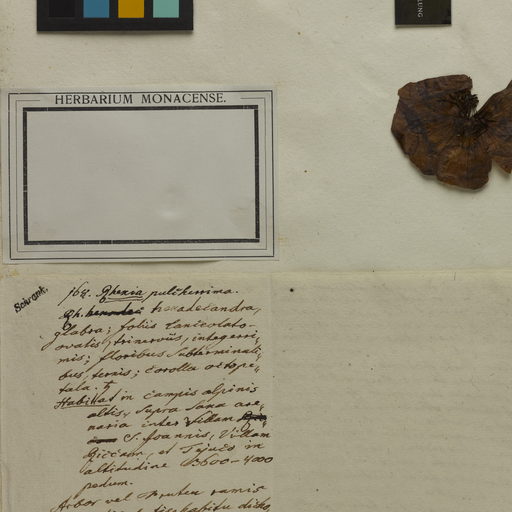 LUNG
HERBARIUM MONACENSE.
Schrank.
164. Rhexia pulcherrima.
Rh. hexadecandra,
glabra; foliis lanceolato-
ovatis, trinerviis, integerri,
mis; floribus subterminali,
bus, ternis; corolla octope,
tala. ♄
Habitat in campis alpinis
altis, supra saxa are,
naria inter Villam
S. Joannis, Villam
et Tejuco in
altitudine 3600-4000
pedum.
Arbor vel Frutex ramis